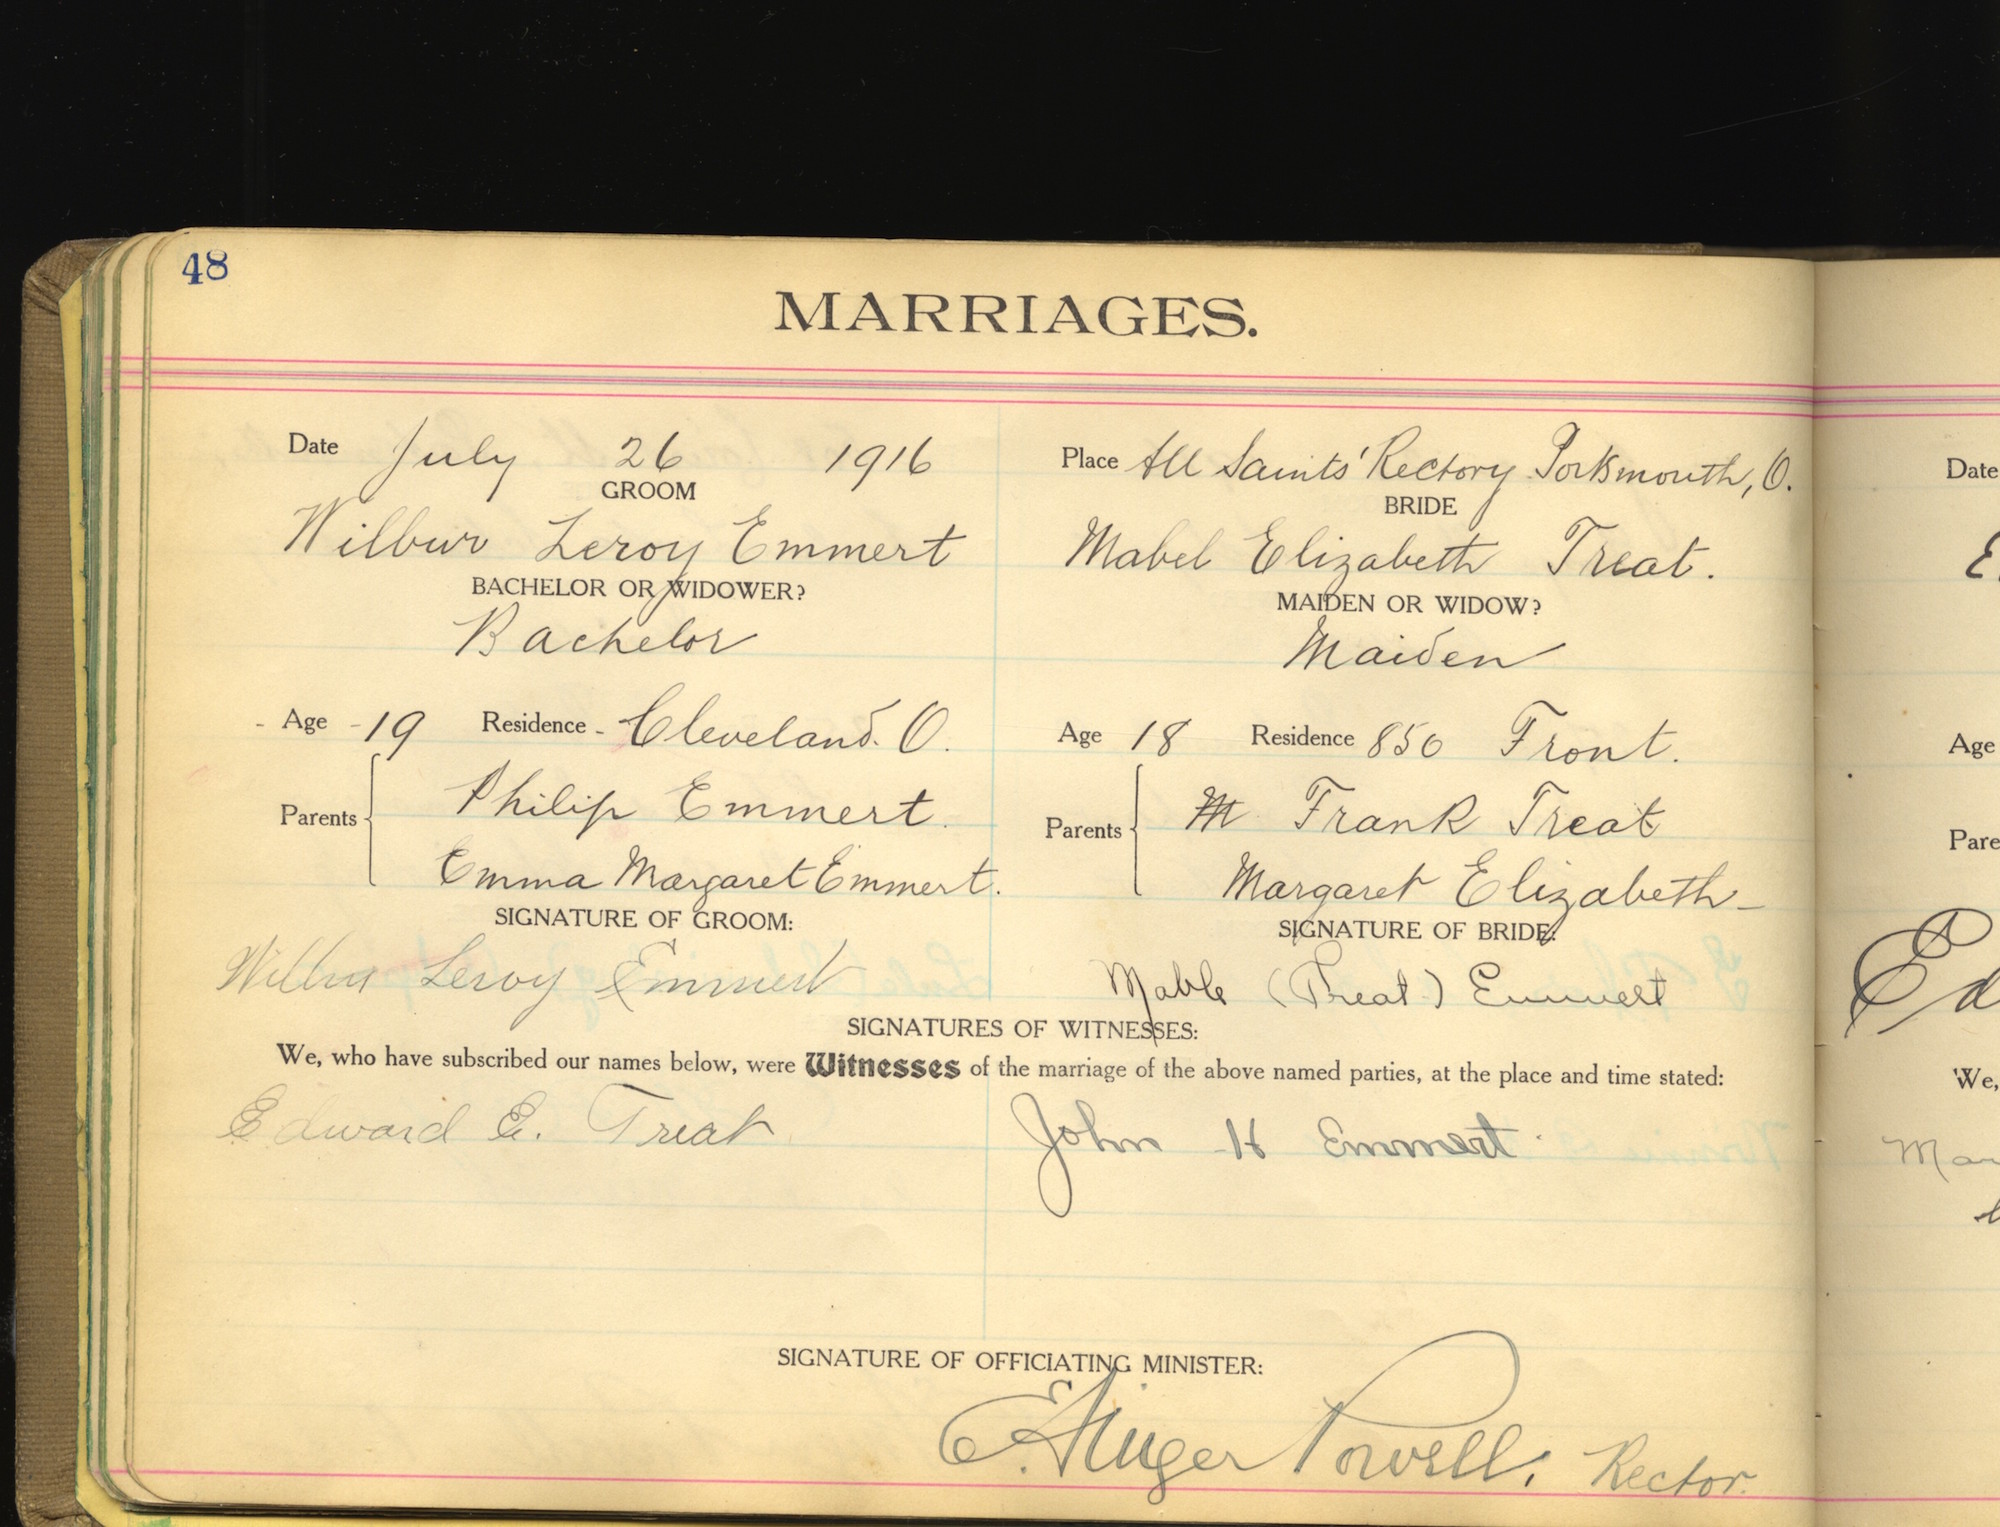 48
MARRIAGES.
Date July 26 1916
GROOM
Wilbur Leroy Emmert
BACHELOR OR WIDOWER?
Bachelor
- Age - 19 Residence - Cleveland. O.
Parents
Philip Emmert.
Emma Margaret Emmert.
SIGNATURE OF GROOM:
Wilbur Leroy Emmert
Place All Saints' Rectory Portsmouth, O.
BRIDE
Mabel Elizabeth Treat.
MAIDEN OR WIDOW?
Maiden
Age 18 Residence 850 Front.
Parents
M Frank Treat
Margaret Elizabeth -
SIGNATURE OF BRIDE:
Mable (Treat) Emmert
SIGNATURES OF WITNESSES:
We, who have subscribed our names below, were Witnesses of the marriage of the above named parties, at the place and time stated:
Edward E. Treat
John H Emmert
SIGNATURE OF OFFICIATING MINISTER:
E. Ainger Powell, Rector.
Date
Age
Pare
Ed
We,
Mar